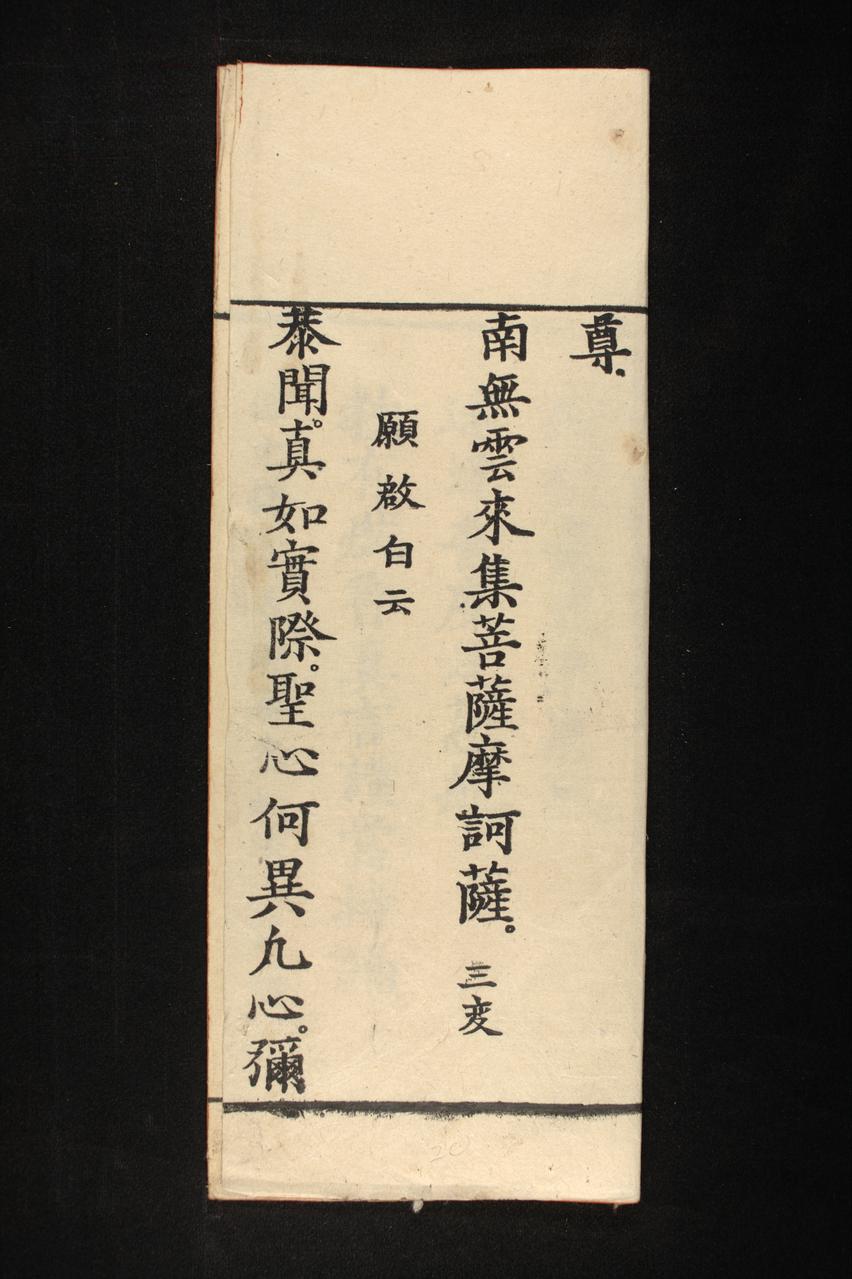 尊.
南無雲來集菩薩摩訶薩。三变
願啟白云
恭聞。真如實際。聖心何異凢心。彌